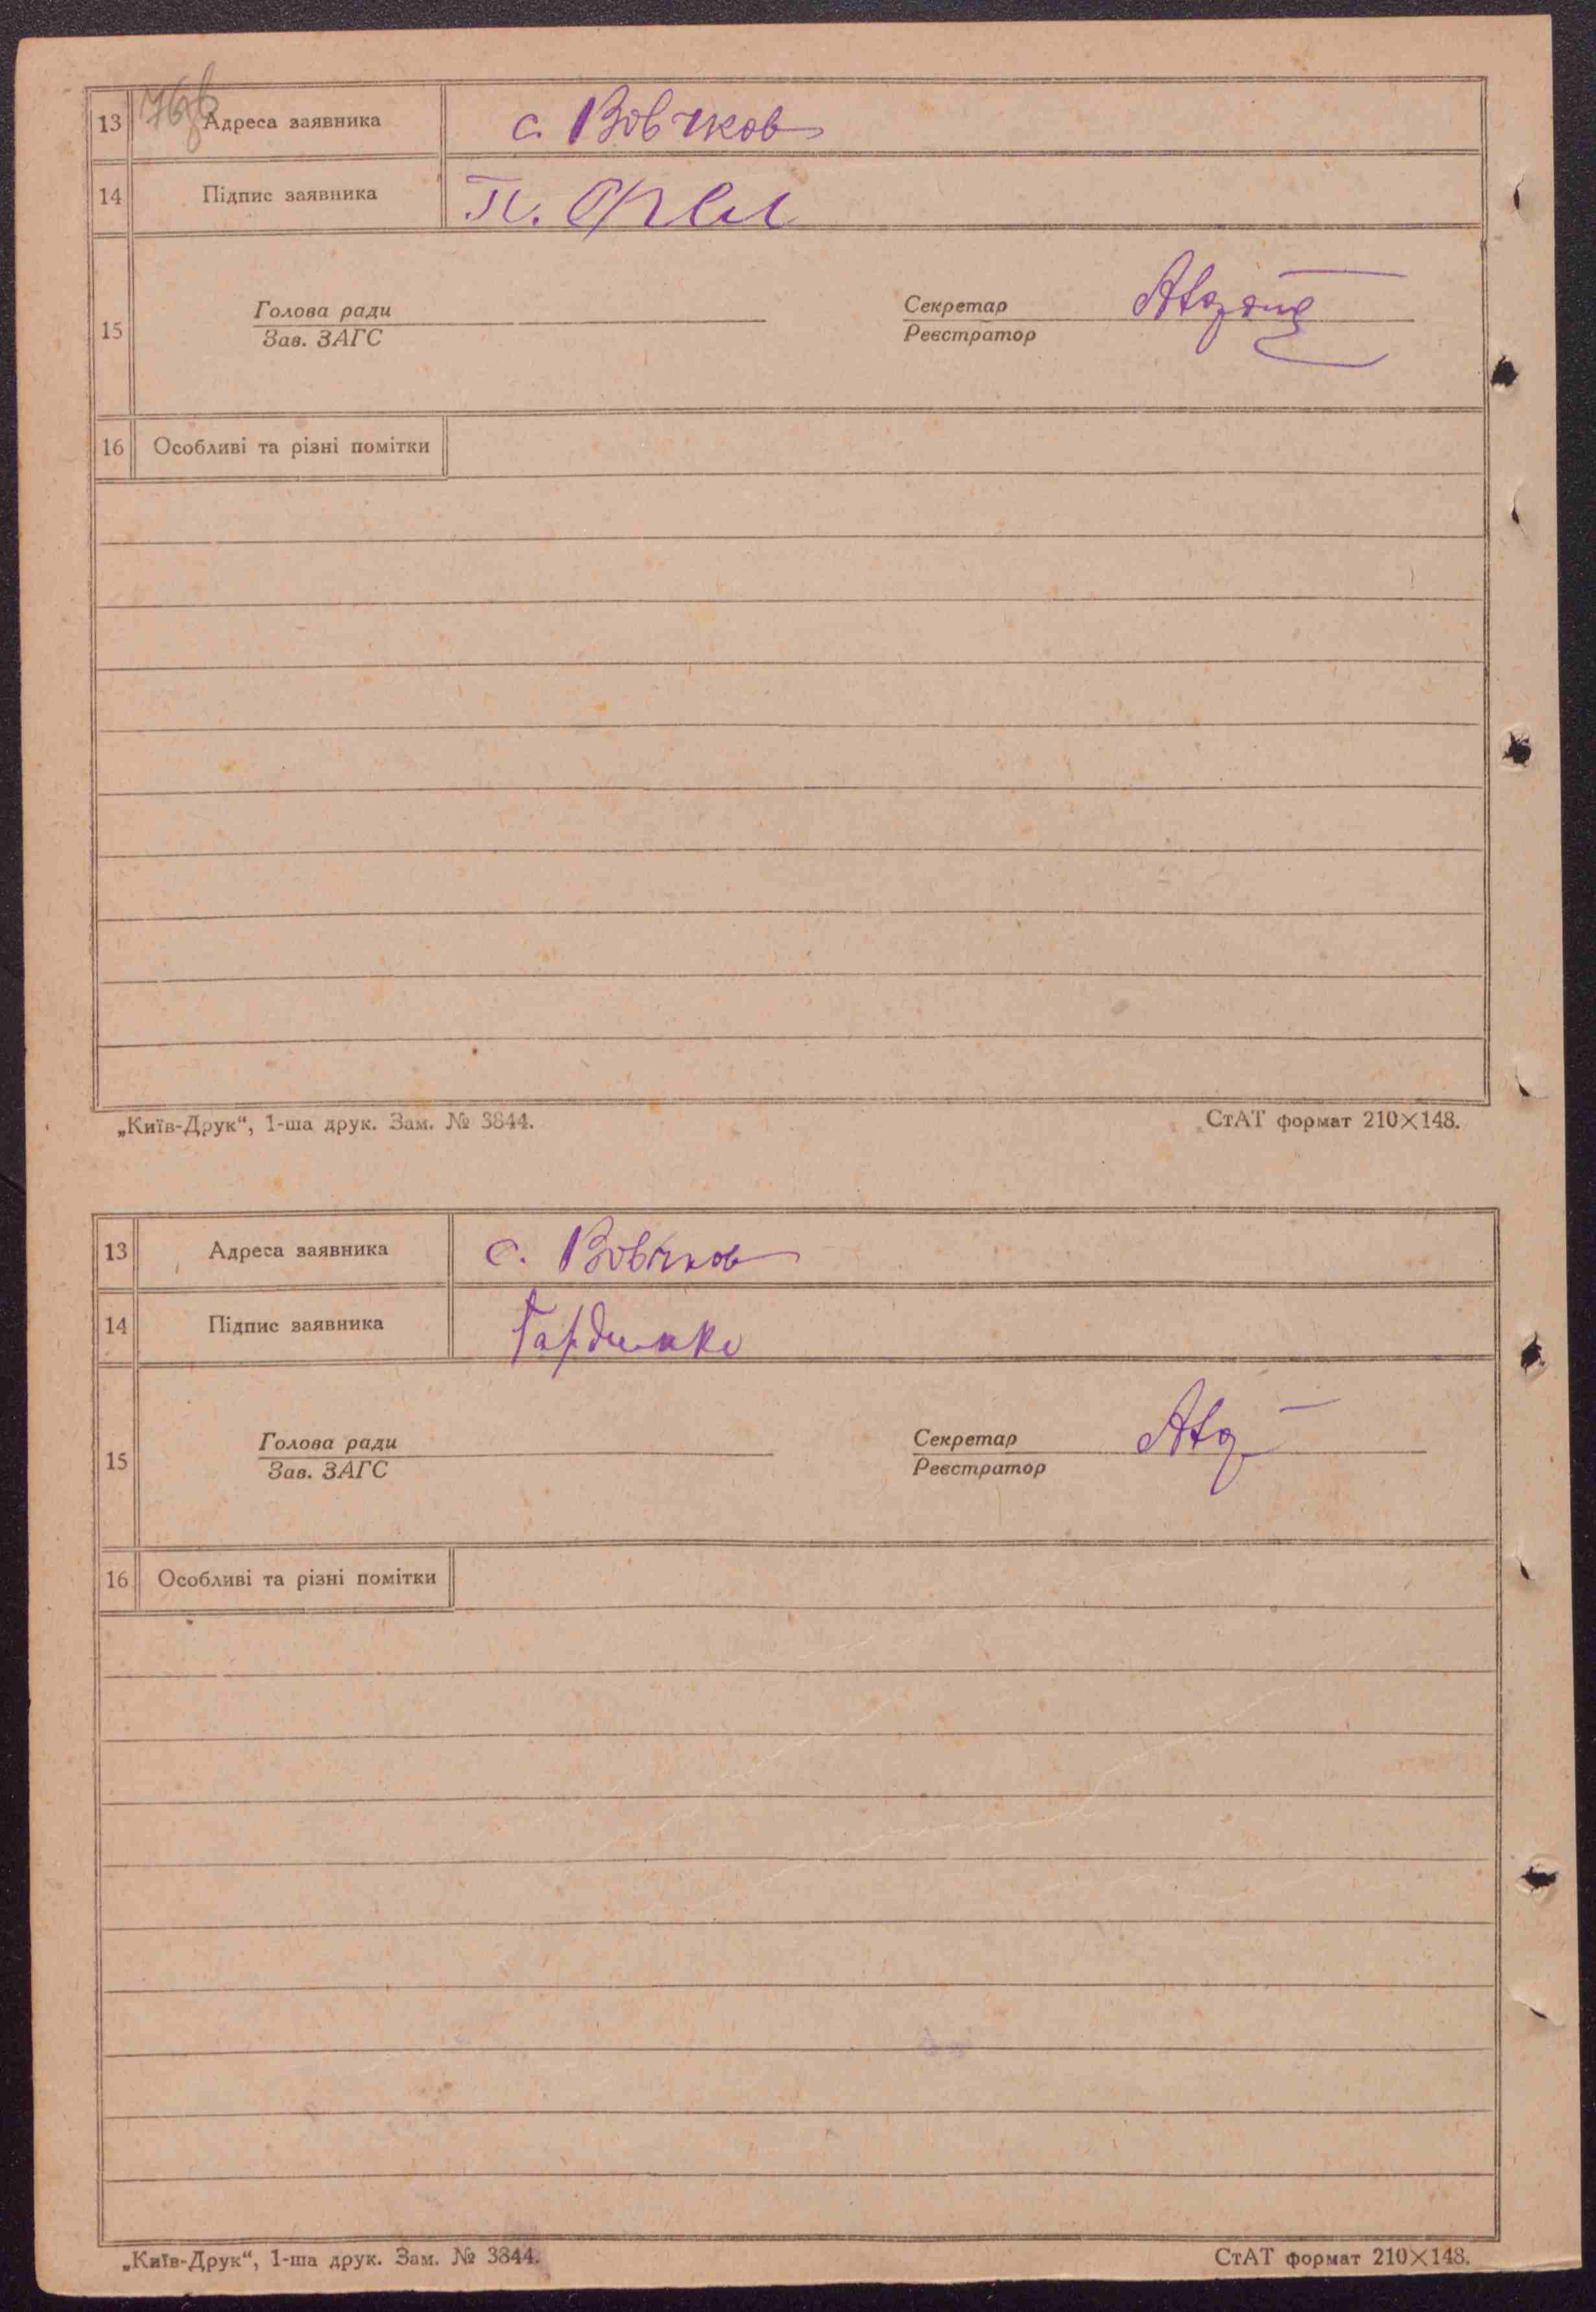 13 Адреса заявника с. Вовчков
14 Підпис заявника П. Орел
Голова ради Секретар
15
Зав. ЗАГС Реєстратор
16 Особливі та різні помітки
„Київ-Друк“, 1-ша друк. Зам. № 3844. СтАТ формат 210×148.
13 Адреса заявника с. Вовчков
14 Підпис заявника
Голова ради Секретар
15
Зав. ЗАГС Реєстратор
16 Особливі та різні помітки
„Київ-Друк“, 1-ша друк. Зам. № 3844. СтАТ формат 210×148.